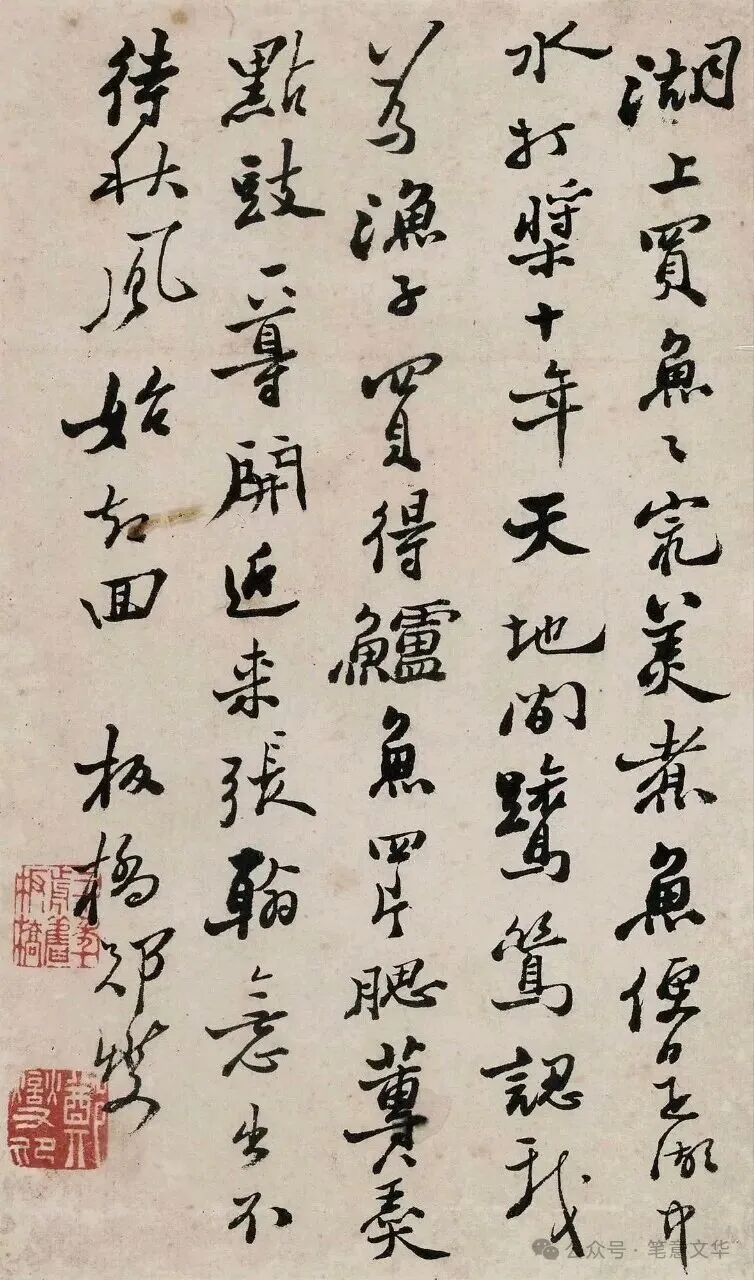 湖上買魚〻寂美煮魚便是湖中
水打槳十年天地間鷺鷥認我
為漁子買得鱸魚四片腮蓴羹
點豉一尊開近来張翰無心出不
待秋風始却回 板橋鄭燮
鄭燮印
公众号·笔意文华